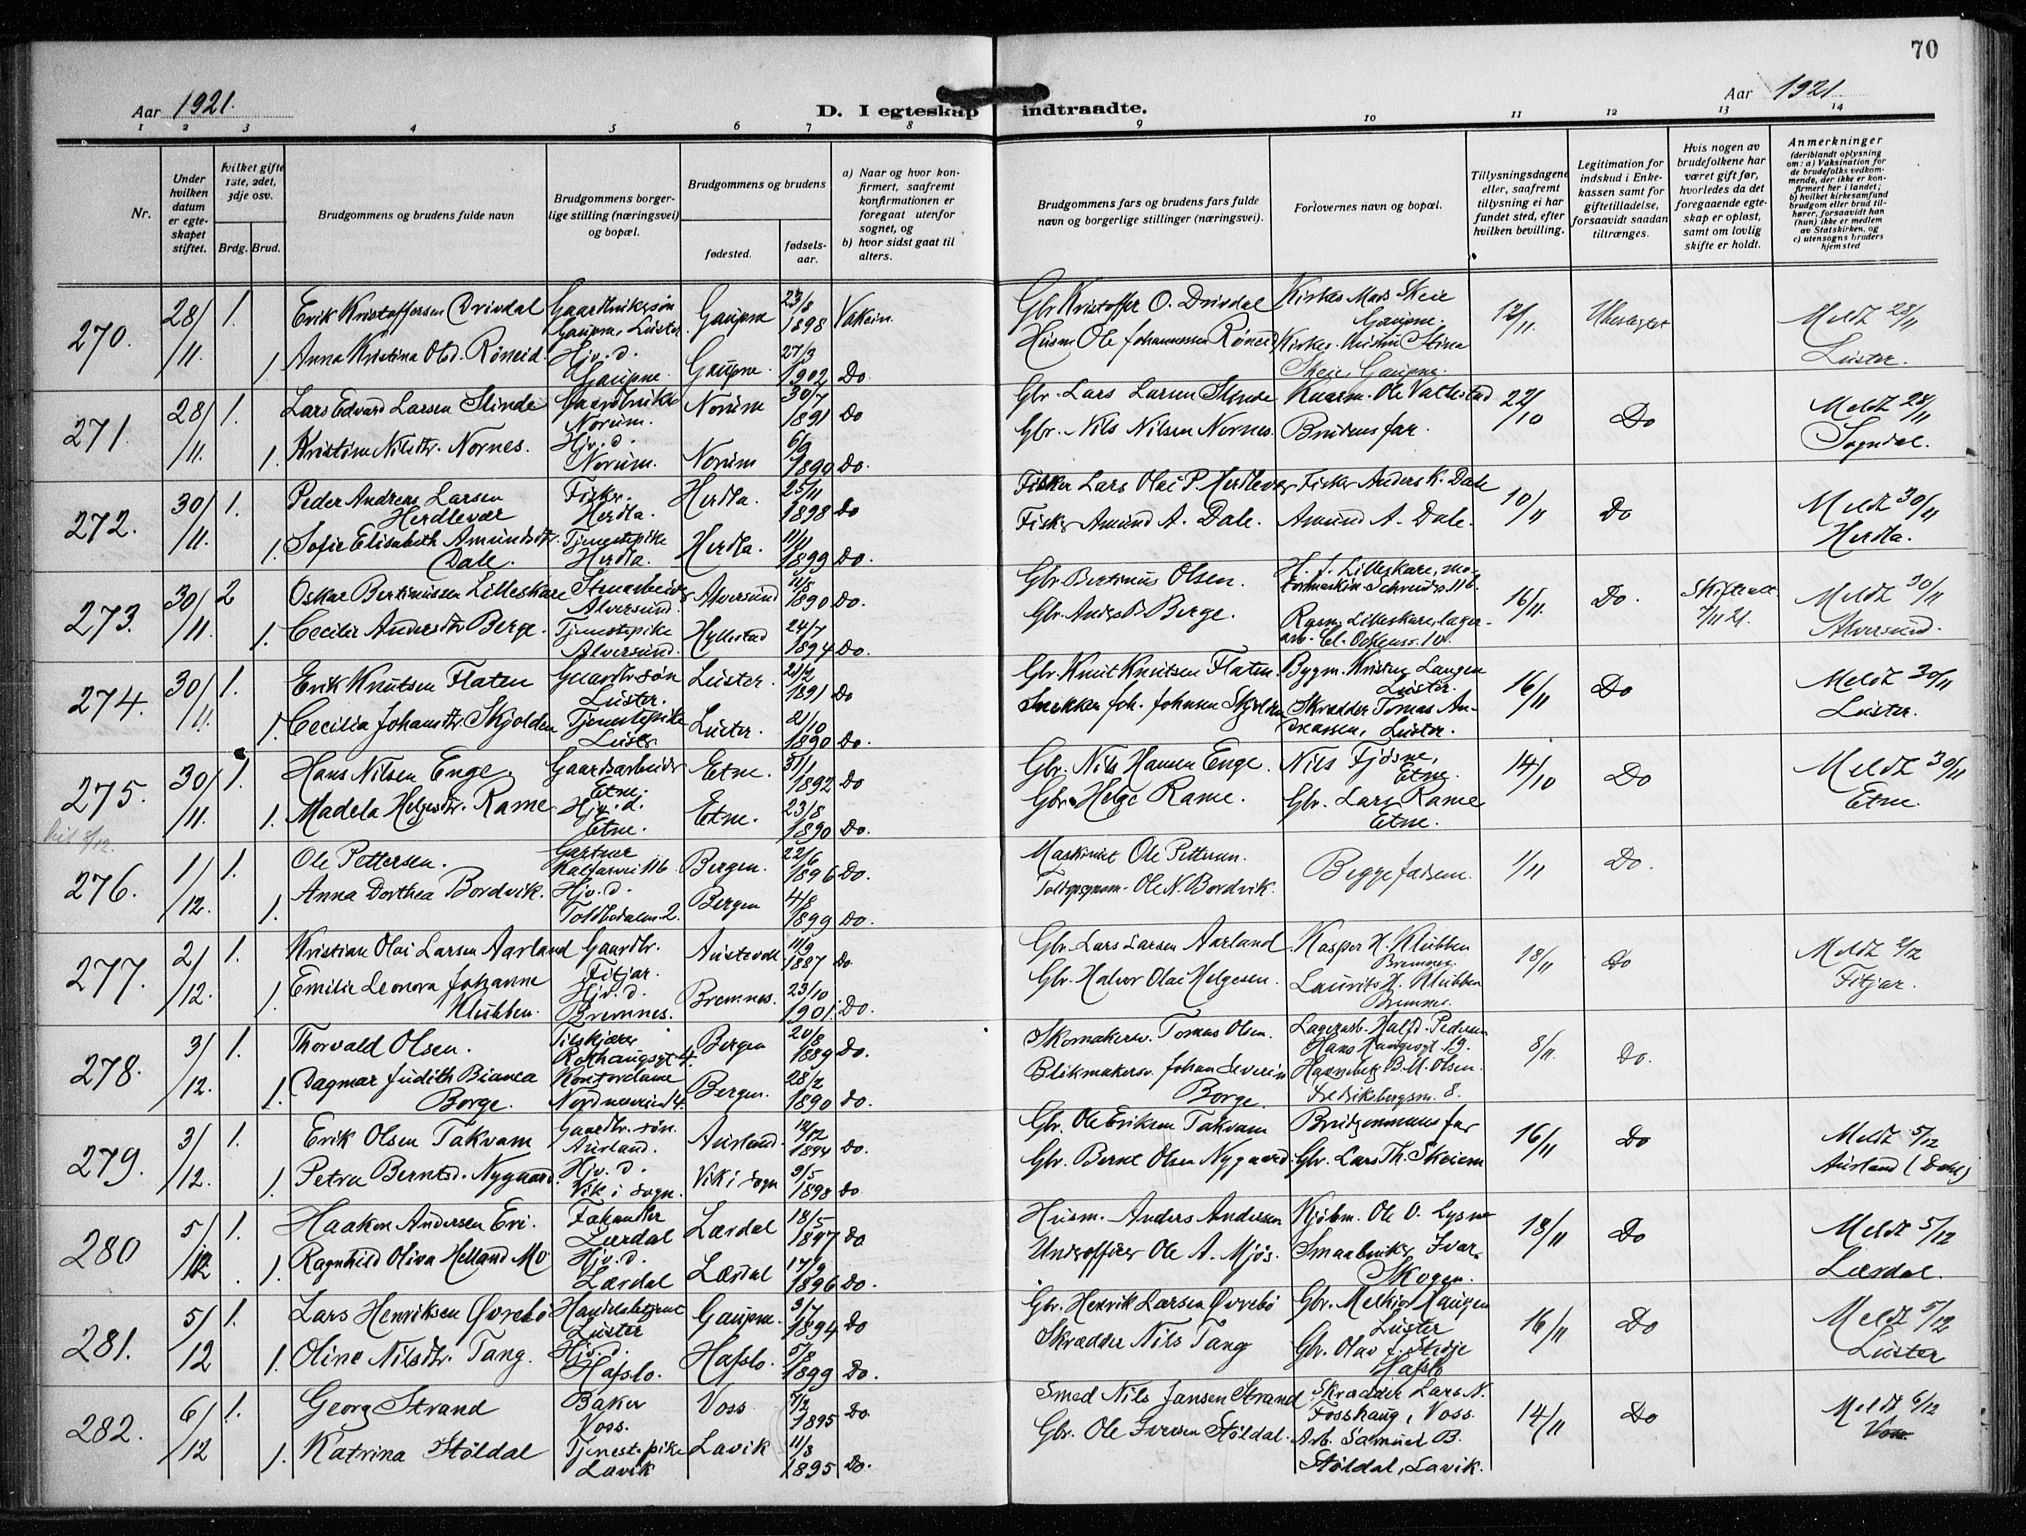 70
Aar 1921.
D. I egteskap indtraadte.
Aar 1921.
1 2 3 4 5 6 7 8 9 10 11 12 13 14
Nr.
Under hvilken datum er egteskapet stiftet.
hvilket gifte 1ste, 2det, 3dje osv.
Brdg. Brud.
Brudgommens og brudens fulde navn
Brudgommens borgerlige stilling (næringsvei) og bopæl.
Brudgommens og brudens
fødested.
fødselsaar.
a) Naar og hvor konfirmert, saafremt konfirmationen er foregaat utenfor sognet, og
b) hvor sidst gaat til alters.
Brudgommens fars og brudens fars fulde navn og borgerlige stillinger (næringsvei).
Forlovernes navn og bopæl.
Tillysningsdagene eller, saafremt tillysning ei har fundet sted, efter hvilken bevilling.
Legitimation for indskud i Enkekassen samt for giftetilladelse, forsaavidt saadan tiltrænges.
Hvis nogen av brudefolkene har været gift før, hvorledes da det foregaaende egteskap er opløst, samt om lovlig skifte er holdt.
Anmerkninger
(deriblandt oplysning om: a) Vaksination for de brudefolks vedkommende, der ikke er konfirmert her i landet; b) hvilket kirkesamfund brudgom eller brud tilhører, forsaavidt han (hun) ikke er medlem av Statskirken, og c) utensogns bruders hjemsted
270. 28/11. 1. Erik Kristoffersen Drivdal Gaupne, Luster. Gaupne 23/8 1898 Gbr Kristoffer O. Drivdal Kirkes. Mads Skeie Gaupne. 12/11. Meldt 28/11
1. Anna Kristina Olsd. Røneid. Hjv. d. Gaupne. Gaupne. 27/3 1902 Do. Husm Ole Johannessen Røneid Skeie, Gaupne. Luster.
271. 28/11. 1. Lars Edvard Larsen Slinde Gaardbruker Norum. Norum 30/7 1891 Do Gbr. Lars Larsen Slinde Ole Vatlestad 22/10 Do Meldt 28/11
1. Kristine Nilsdtr. Nornes. Hjv. d. Norum. Norum 6/9 1890 Do. Gbr. Nils Nilsen Nornes. Brudens far. Sogndal.
272. 30/11. 1. Peder Andreas Larsen Herdlevær Fisker. Herdla. Herdla. 25/11 1898 Do Fisker Lars Olai P. Herdlevær Fisker Anders K. Dale 10/11 Do Meldt 30/11
1. Sofie Elisabeth Amundsdtr. Dale. Tjenestepike Herdla. Herdla. 11/1 1899 Do. Fisker Amund A. Dale. Amund A. Dale. Herdla.
273. 30/11. 2 Oskar Bertinussen Lilleskare Alversund. Alversund 11/8 1890 Do. Gbr Bertinus Olsen. H. J. Lilleskare, 16/11. Do. 7/11 21. Meldt 30/11
1. Cecilie Andersdtr Berge. Tjenestepike Alversund. Hyllestad 24/7 1894 Do. Gbr. Anders Berge. Rasm. Lilleskare, lagerarb. Alversund.
274. 30/11. 1. Erik Knutsen Flaten Gaardbr. søn Luster. Luster. 21/2 1891 Do Gbr. Knut Knutsen Flaten Bygm. Kristen Laugen Luster. 16/11 Do Meldt 30/11
1. Cecilia Johansdtr. Skjolden Tjenestepike Luster Luster. 21/10 1890 Do. Snekker Joh. Johnsen Skjolden Skrædder Tomas Andreassen, Luster. Luster.
275. 30/11. 1. Hans Nilsen Enge. Gaardsarbeider Etne. Etne. 31/1 1892 Do Gbr. Nils Hansen Enge. Nils Fjøsne, Etne. 14/10 Do Meldt 30/11
1. Madela Helgesdtr. Rame. Hjv. d. Etne. Etne. 23/8 1890 Do. Gbr. Helge Rame. Gbr. Lars Rame Etne. Etne.
276. 1/12. 1. Ole Pettersen. Gartner Kalfarvei 116 Bergen. 22/6 1896 Do. Maskinist Ole Pettersen. Begge fædrene. 1/11 Do.
1. Anna Dorthea Bordvik. Hjv. d. Toldbodalm. 2. Bergen 4/8 1899 Do. Ole N. Bordvik.
277. 2/12. 1. Kristian Olai Larsen Aarland Gaardbr. Fitjar. Austevoll 11/9 1887 Do. Gbr. Lars Larsen Aarland Kasper H. Klubben Bremnes. 18/11 Do Meldt 2/12
1. Emilie Leonora Johanne Klubben. Hjv. d. Bremnes. Bremnes. 23/10 1901. Do. Gbr. Halvor Olai Helgesen. Laurits H. Klubben Bremnes. Fitjar.
278. 3/12. 1. Thorvald Olsen. Tilskjærer Bergen 20/8 1889 Do. Skomakersv. Tomas Olsen. Lagerarb. Halfd. Pedersen Hans Haugesgt 19. 8/11. Do.
1. Dagmar Judith Bianca Borge. Kontordame Nordnesveien 4. Bergen. 28/2 1890 Do. Blikmakersv. Johan Severin Borge. B. M. Olsen. Fredriksbergsm. 8.
279. 3/12. 1. Erik Olsen Takvam Gaardbr. søn. Aurland. Aurland. 12/12 1894 Do. Gbr. Ole Eriksen Takvam Brudgommens far 16/11 Do Meldt 5/12
1. Petra Berntsd. Nygaard. Hjv. d. Vik i Sogn. Vik i Sogn 9/5 1898 Do. Gbr. Bernt Olsen Nygaard. Gbr. Lars Th. Skeiem Aurland (Dahl)
280 5/12 1. Haakon Andersen Eri. Lærdal Lærdal 18/5 1897 Do. Husm. Anders Andersen Kjøbm. Ole O. Lysne 18/11 Do Meldt 5/12
1. Ragnhild Oliva Helland Mo Hjv. d. Lærdal Lærdal 17/9 1896 Do. Underofficer Ole A. Mjøs. Smaabruker Ivar Skogen. Lærdal.
281. 5/12 1. Lars Henriksen Øvrebø Handelsbetjent Luster Gaupne. 3/7 1894 Do Gbr. Henrik Larsen Øvrebø Gbr. Melkior Haugen Luster 16/11 Do Meldt 5/12
1. Oline Nilsdtr. Tang. Hjv. d. Hafslo. Hafslo. 5/8 1899 Do. Skrædder Nils Tang Gbr. Olav J. Stedje Hafslo Luster
282. 6/12 1. Georg Strand Baker Voss. Voss 5/2 1895 Do. Smed Nils Jansen Strand Skrædder Lars N. Fosshaug, Voss. 14/11 Do Meldt 6/12
1. Katrina Støldal Tjenestepike Lavik Lavik 11/3 1895 Do. Gbr. Ole Iversen Støldal. Arb. Samuel B. Støldal, Lavik. Voss.